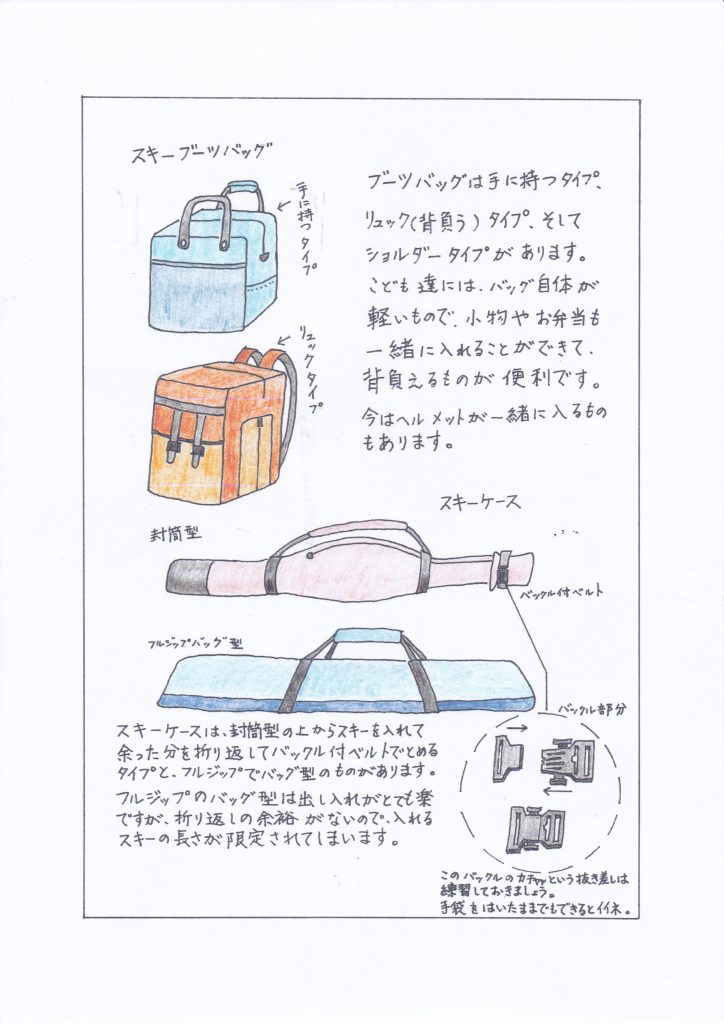 スキーブーツバッグ
手に持つタイプ
リュックタイプ
ブーツバッグは手に持つタイプ、
リュック(背負う)タイプ、そして
ショルダータイプがあります。
こども達には、バッグ自体が
軽いもので、小物やお弁当も
一緒に入れることができて、
背負えるものが便利です。
今はヘルメットが一緒に入るもの
もあります。
スキーケース
封筒型
バックル付ベルト
フルジップバッグ型
バックル部分
スキーケースは、封筒型の上からスキーを入れて
余った分を折り返してバックル付ベルトでとめる
タイプと、フルジップでバッグ型のものがあります。
フルジップのバッグ型は出し入れがとても楽
ですが、折り返しの余裕がないので、入れる
スキーの長さが限定されてしまいます。
このバックルのカチャッという抜き差しは
練習しておきましょう。
手袋をはいたままでもできるとイイネ。